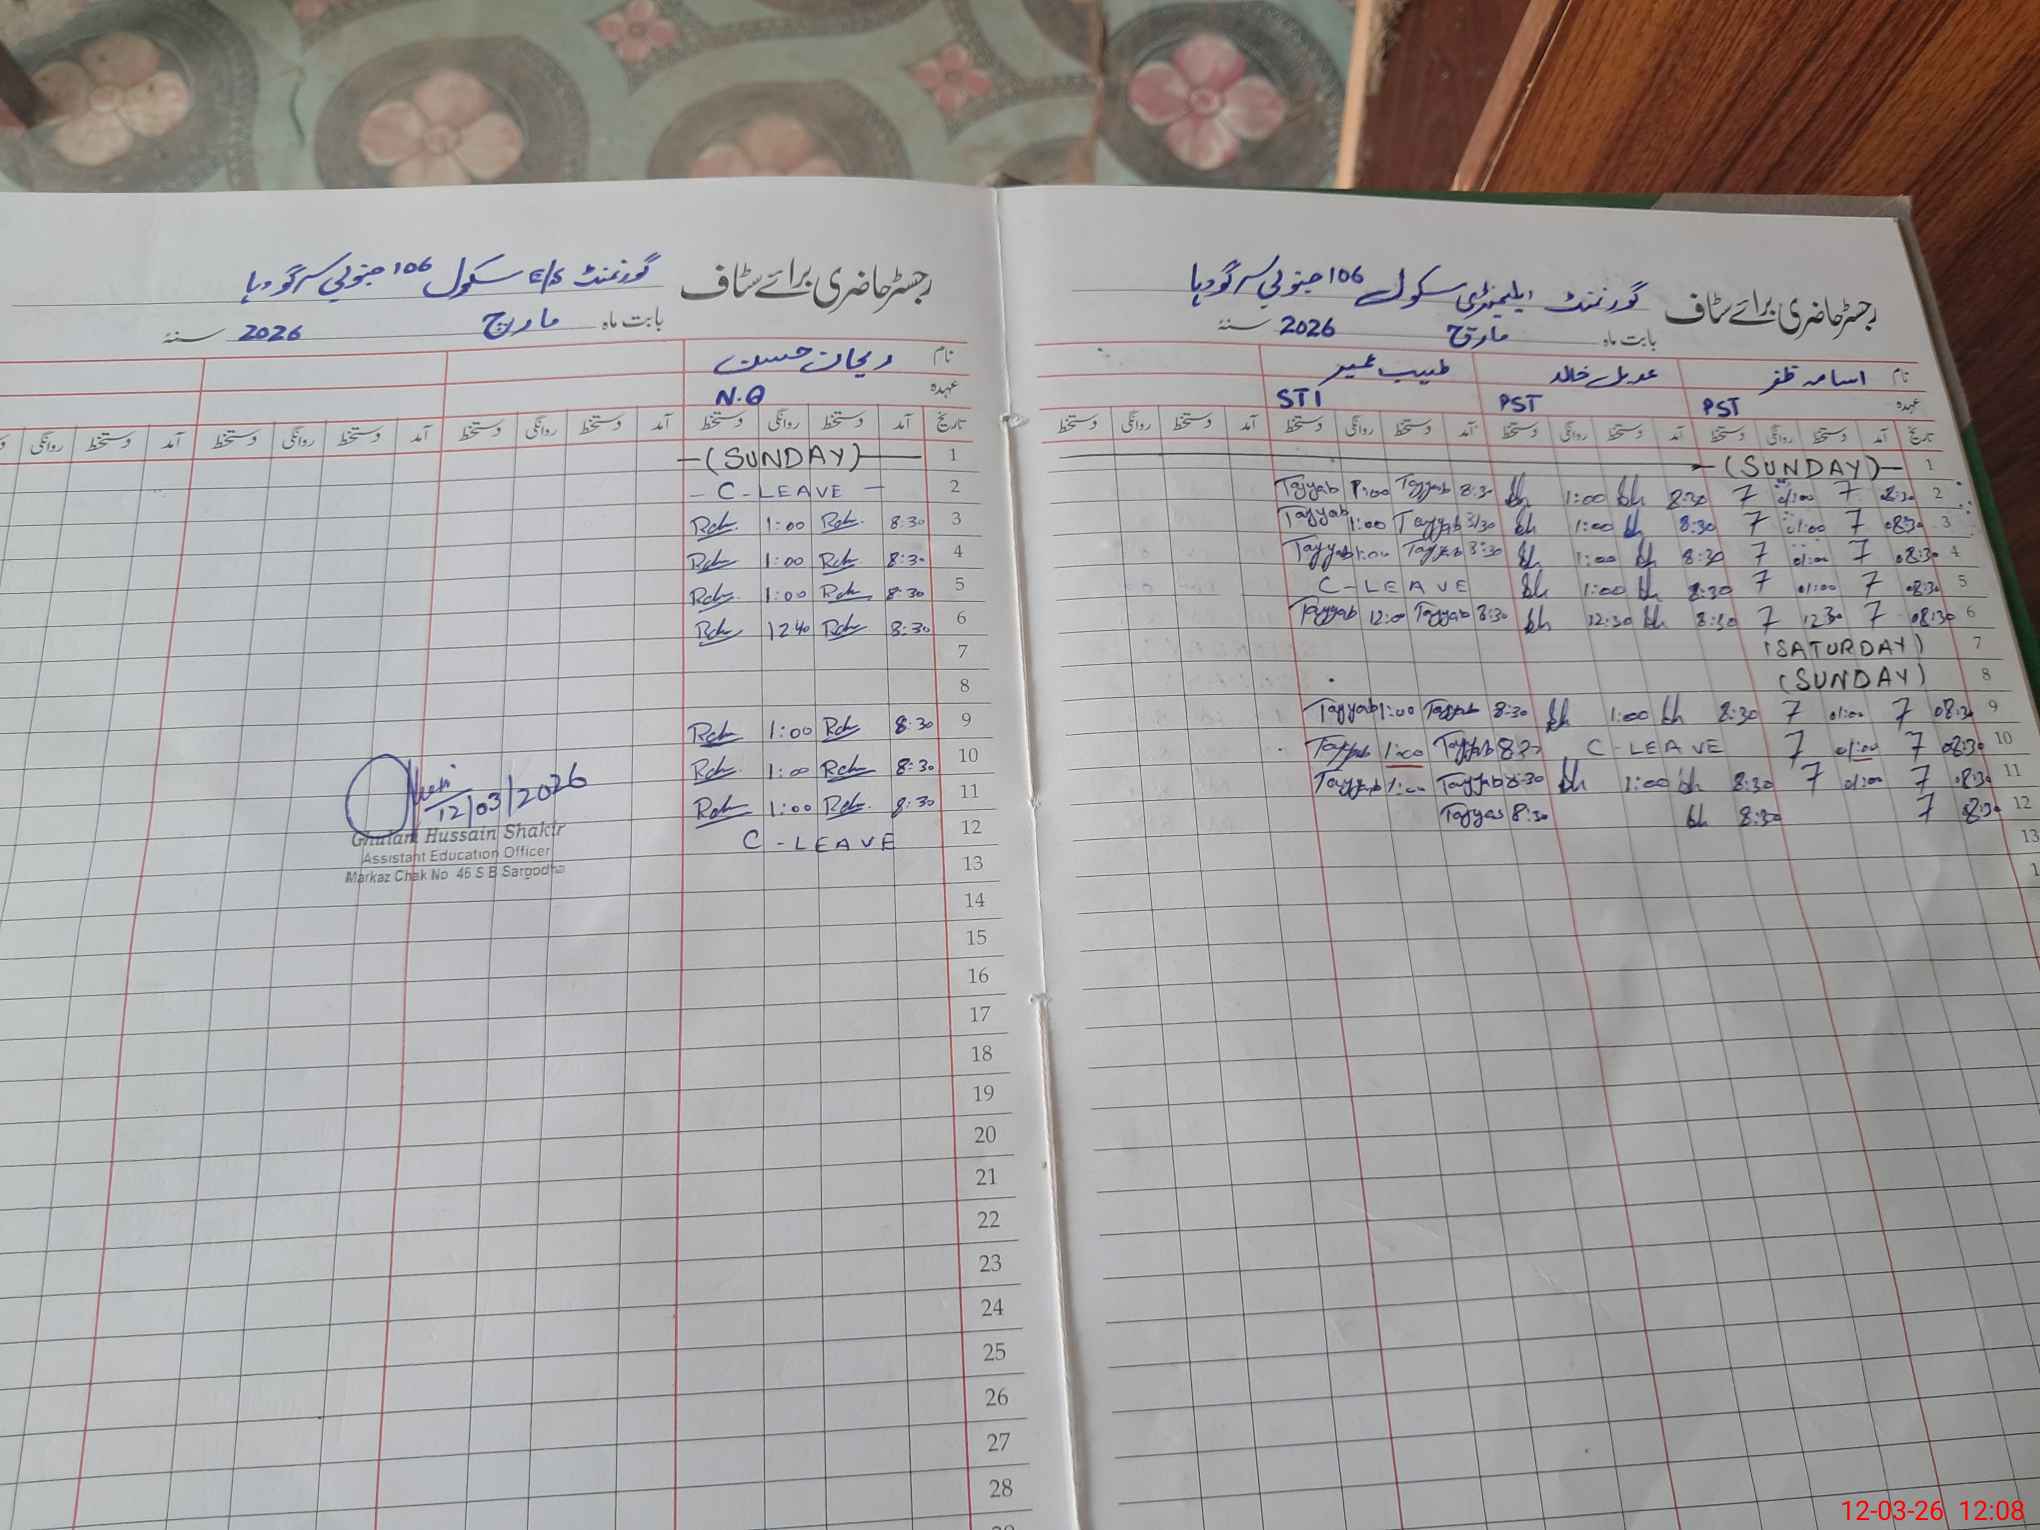 رجسٹر حاضری برائے سٹاف گورنمنٹ ایلیمنٹری سکول 106 جنوبی سرگودہا
بابت ماہ مارچ 2026 سنۂ
نام اسامہ ظفر عدیل خالد طیب عمیر
عہدہ PST PST STI
تاریخ آمد دستخط روانگی دستخط آمد دستخط روانگی دستخط آمد دستخط روانگی دستخط آمد دستخط روانگی دستخط
1 (SUNDAY)
2 08:30 7 01:00 7 8:30 1:00 8:30 Tayyab 1:00 Tayyab
3 08:30 7 01:00 7 8:30 1:00 8:30 Tayyab 1:00 Tayyab
4 08:30 7 01:00 7 8:30 1:00 8:30 Tayyab 1:00 Tayyab
5 08:30 7 01:00 7 8:30 1:00 C-LEAVE
6 08:30 7 12:30 7 8:30 12:30 8:30 Tayyab 12:00 Tayyab
7 (SATURDAY)
8 (SUNDAY)
9 08:30 7 01:00 7 8:30 1:00 8:30 Tayyab 1:00 Tayyab
10 08:30 7 01:00 7 C-LEAVE 8:30 Tayyab 1:00 Tayyab
11 08:30 7 01:00 7 8:30 1:00 8:30 Tayyab 1:00 Tayyab
12 8:30 7 8:30 8:30 Tayyab
13
رجسٹر حاضری برائے سٹاف گورنمنٹ E/S سکول 106 جنوبی سرگودہا
بابت ماہ مارچ 2026 سنۂ
نام ریحان حسن
عہدہ N.Q
تاریخ آمد دستخط روانگی دستخط آمد دستخط روانگی دستخط آمد دستخط روانگی دستخط آمد دستخط روانگی
1 (SUNDAY)
2 C-LEAVE
3 8:30 1:00
4 8:30 1:00
5 8:30 1:00
6 8:30 1240
7
8
9 8:30 1:00
10 8:30 1:00
11 8:30 1:00
12 C-LEAVE
13
14
15
16
17
18
19
20
21
22
23
24
25
26
27
28
12/03/2026
Ghulam Hussain Shakir
Assistant Education Officer
Markaz Chak No 46 S B Sargodha
12-03-26 12:08